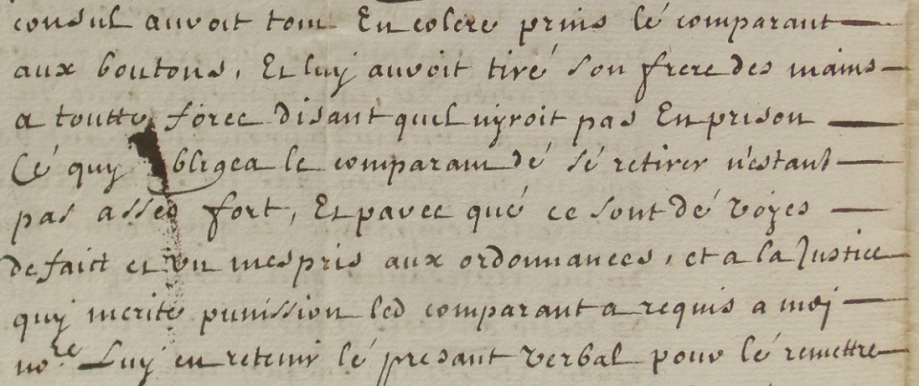 consul auroit tout En colere prins lé comparant
aux boutons, Et luy auroit tiré son frere des mains
a toutte force disant quil nyroit pas En prison
Cé quy obligea le comparant dé sé retirer n'estant
pas asses fort, Et parce qué ce sont dé voyes
de faict et un mespris aux ordonnances, et a la Justice
quy merite punission led comparant a requis a moy
no.re Luy en retenir lé presant verbal pour lé remettre